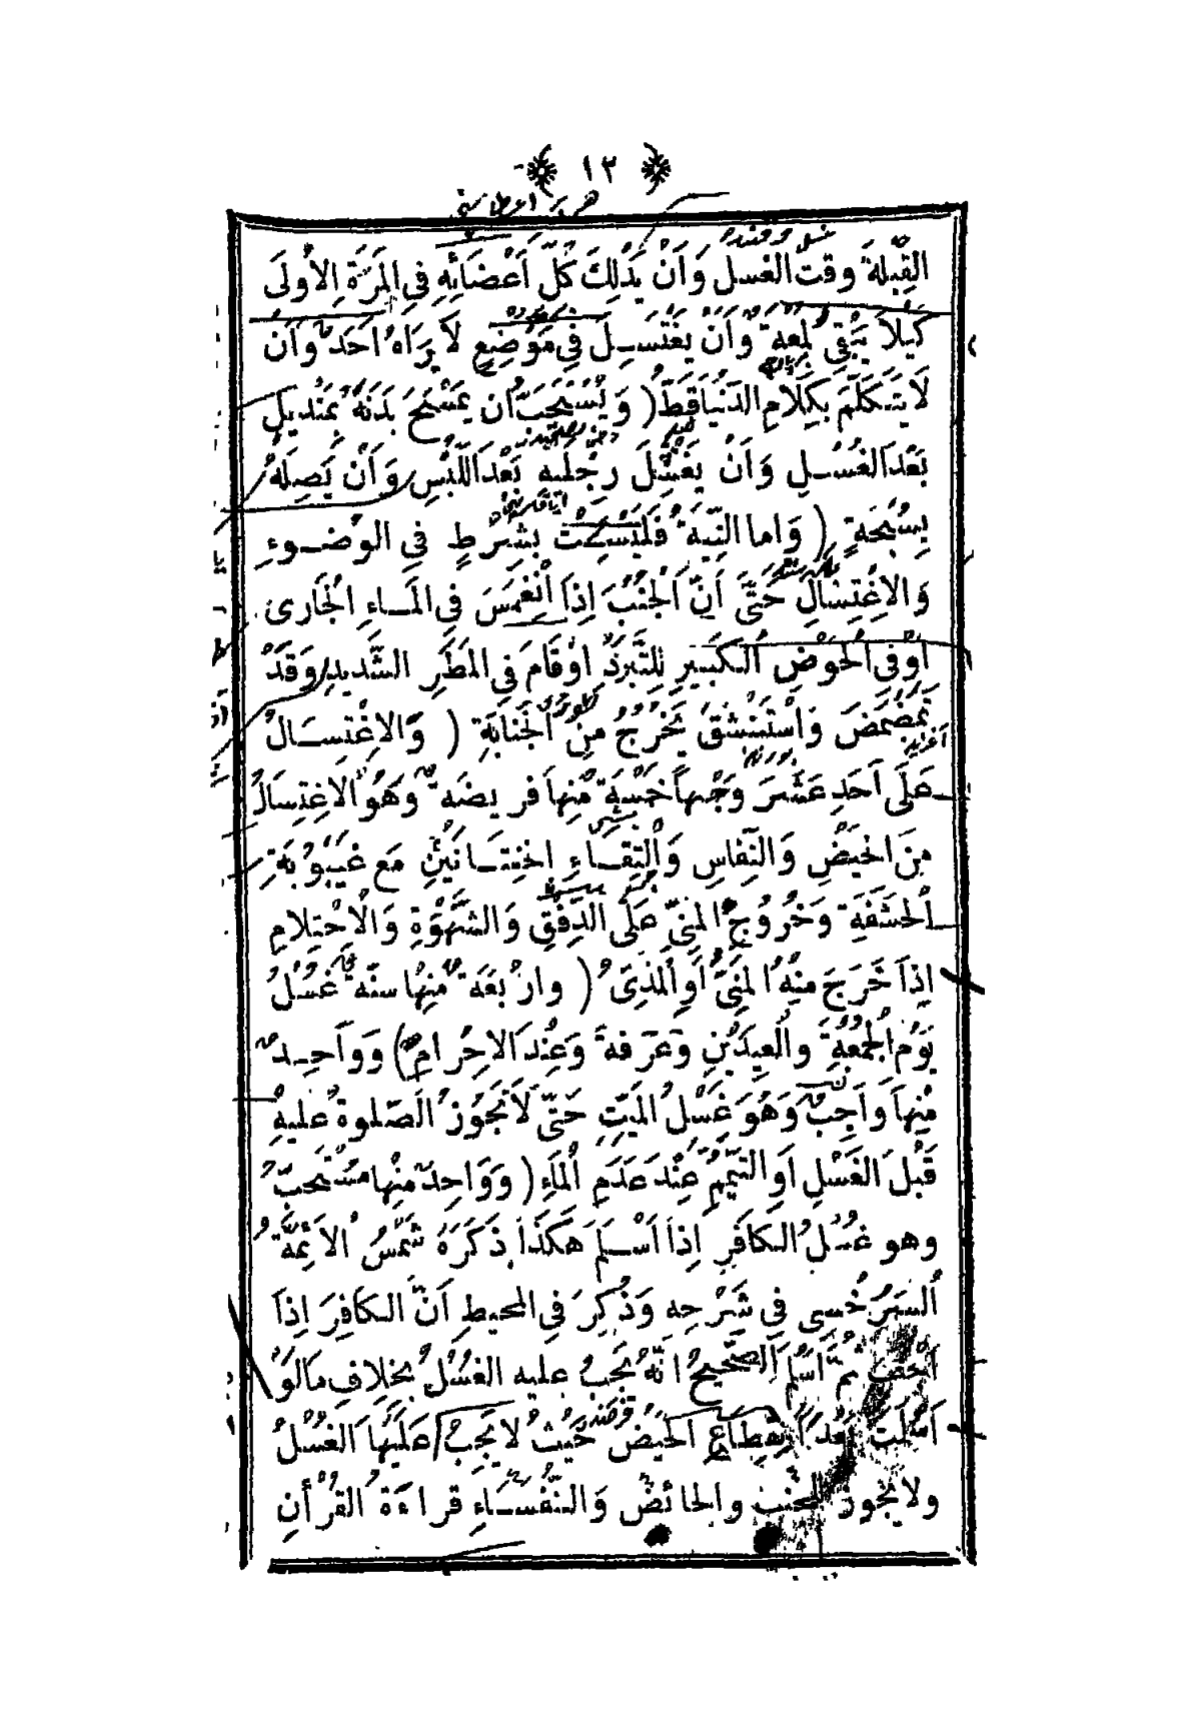 ﴿ ١٣ ﴾
القِبْلَةَ وقتَ الغسل وَاَنْ يَدْلِكَ كُلَّ اَعْضَائِهِ فِي المَرَّةِ الاُولَى
كَيْلاَ يَبْقَى لُمْعَةٌ وَاَنْ يَغْتَسِلَ فِي مَوْضِعٍ لاَ يَرَاهُ اَحَدٌ وَاَنْ
لاَ يَتَكَلَّمَ بِكَلاَمِ الدنْيَا قَطُّ ( وَيُسْتَحَبُّ ان يَمْسَحَ بَدَنَهُ بِمَنْدِيلٍ
بَعْدَ الغُسْلِ وَاَنْ يَغْسِلَ رِجْلَيْهِ بَعْدَ اللُّبْسِ وَاَنْ يُصِلَهُ
بِسُبْحَةٍ ( وَاما النِّيَّةُ فَلَيْسَتْ بِشَرْطٍ فِي الوُضُوءِ
وَالاِغْتِسَالِ حَتَّى اَنَّ الْجُنُبَ اِذَا انْغَمَسَ فِي المَاءِ الْجَارِى
اَوْ فِى الْحَوْضِ الْكَبِيرِ لِلتَّبَرُّدِ اَوْ قَامَ فِي المَطَرِ الشَّدِيدِ وَقَدْ
تَمَضْمَضَ وَاسْتَنْشَقَ يَخْرُجُ مِنَ الْجَنَابَةِ ( وَالاِغْتِسَالُ
عَلَى اَحَدِ عَشَرَ وَجْهاً خَمْسَةٌ مِنْهَا فَرِيضَةٌ وَهُوَ الاِغْتِسَالُ
مِنَ الحَيْضِ وَالنِّفَاسِ وَالْتِقَاءِ الخِتَانَيْنِ مَعَ غَيْبُوبَةِ
الْحَشَفَةِ وَخُرُوجِ المَنِىِّ عَلَى الدَّفْقِ وَالشَّهْوَةِ وَالْاِحْتِلامِ
اِذَا خَرَجَ مِنْهُ المَنِىُّ اَوِ الْمَذِىُّ ( وَاَرْبَعَةٌ مِنْهَا سنّةٌ غُسْلُ
يَوْمِ الْجُمُعَةِ وَالْعِيدَيْنِ وَعَرَفَةَ وَعِنْدَ الاِحْرَامِ ) وَوَاحِدٌ
مِنْهَا وَاجِبٌ وَهُوَ غَسْلُ المَيِّتِ حَتَّى لاَ تَجُوزُ الصَّلوةُ عَلَيْهِ
قَبْلَ الغَسْلِ اَوِ التَّيَمُّمِ عِنْدَ عَدَمِ الْمَاءِ ( وَوَاحِدٌ مِنْهَا مُسْتَحَبٌّ
وهو غُسْلُ الكَافِرِ اِذَا اَسْلَمَ هَكَذَا ذَكَرَهُ شَمْسُ الاَئِمَّةِ
السَّرَخْسِى فِي شَرْحِهِ وَذُكِرَ فِي المحيطِ اَنَّ الكَافِرَ اِذَا
اَجْنَبَ ثُمَّ اَسْلَمَ الصَّحِيحُ انَّهُ يَجِبُ عليه الغُسْلُ بِخِلاَفِ مَا لَوْ
اَسْلَمَتْ بَعْدَ انْقِطَاعِ الحَيْضِ حَيْثُ لا يَجِبُ عَلَيْهَا الغُسْلُ
ولا يجوز للجنب والحائض وَالنُّفَسَاءِ قراءَةُ القُرْأنِ